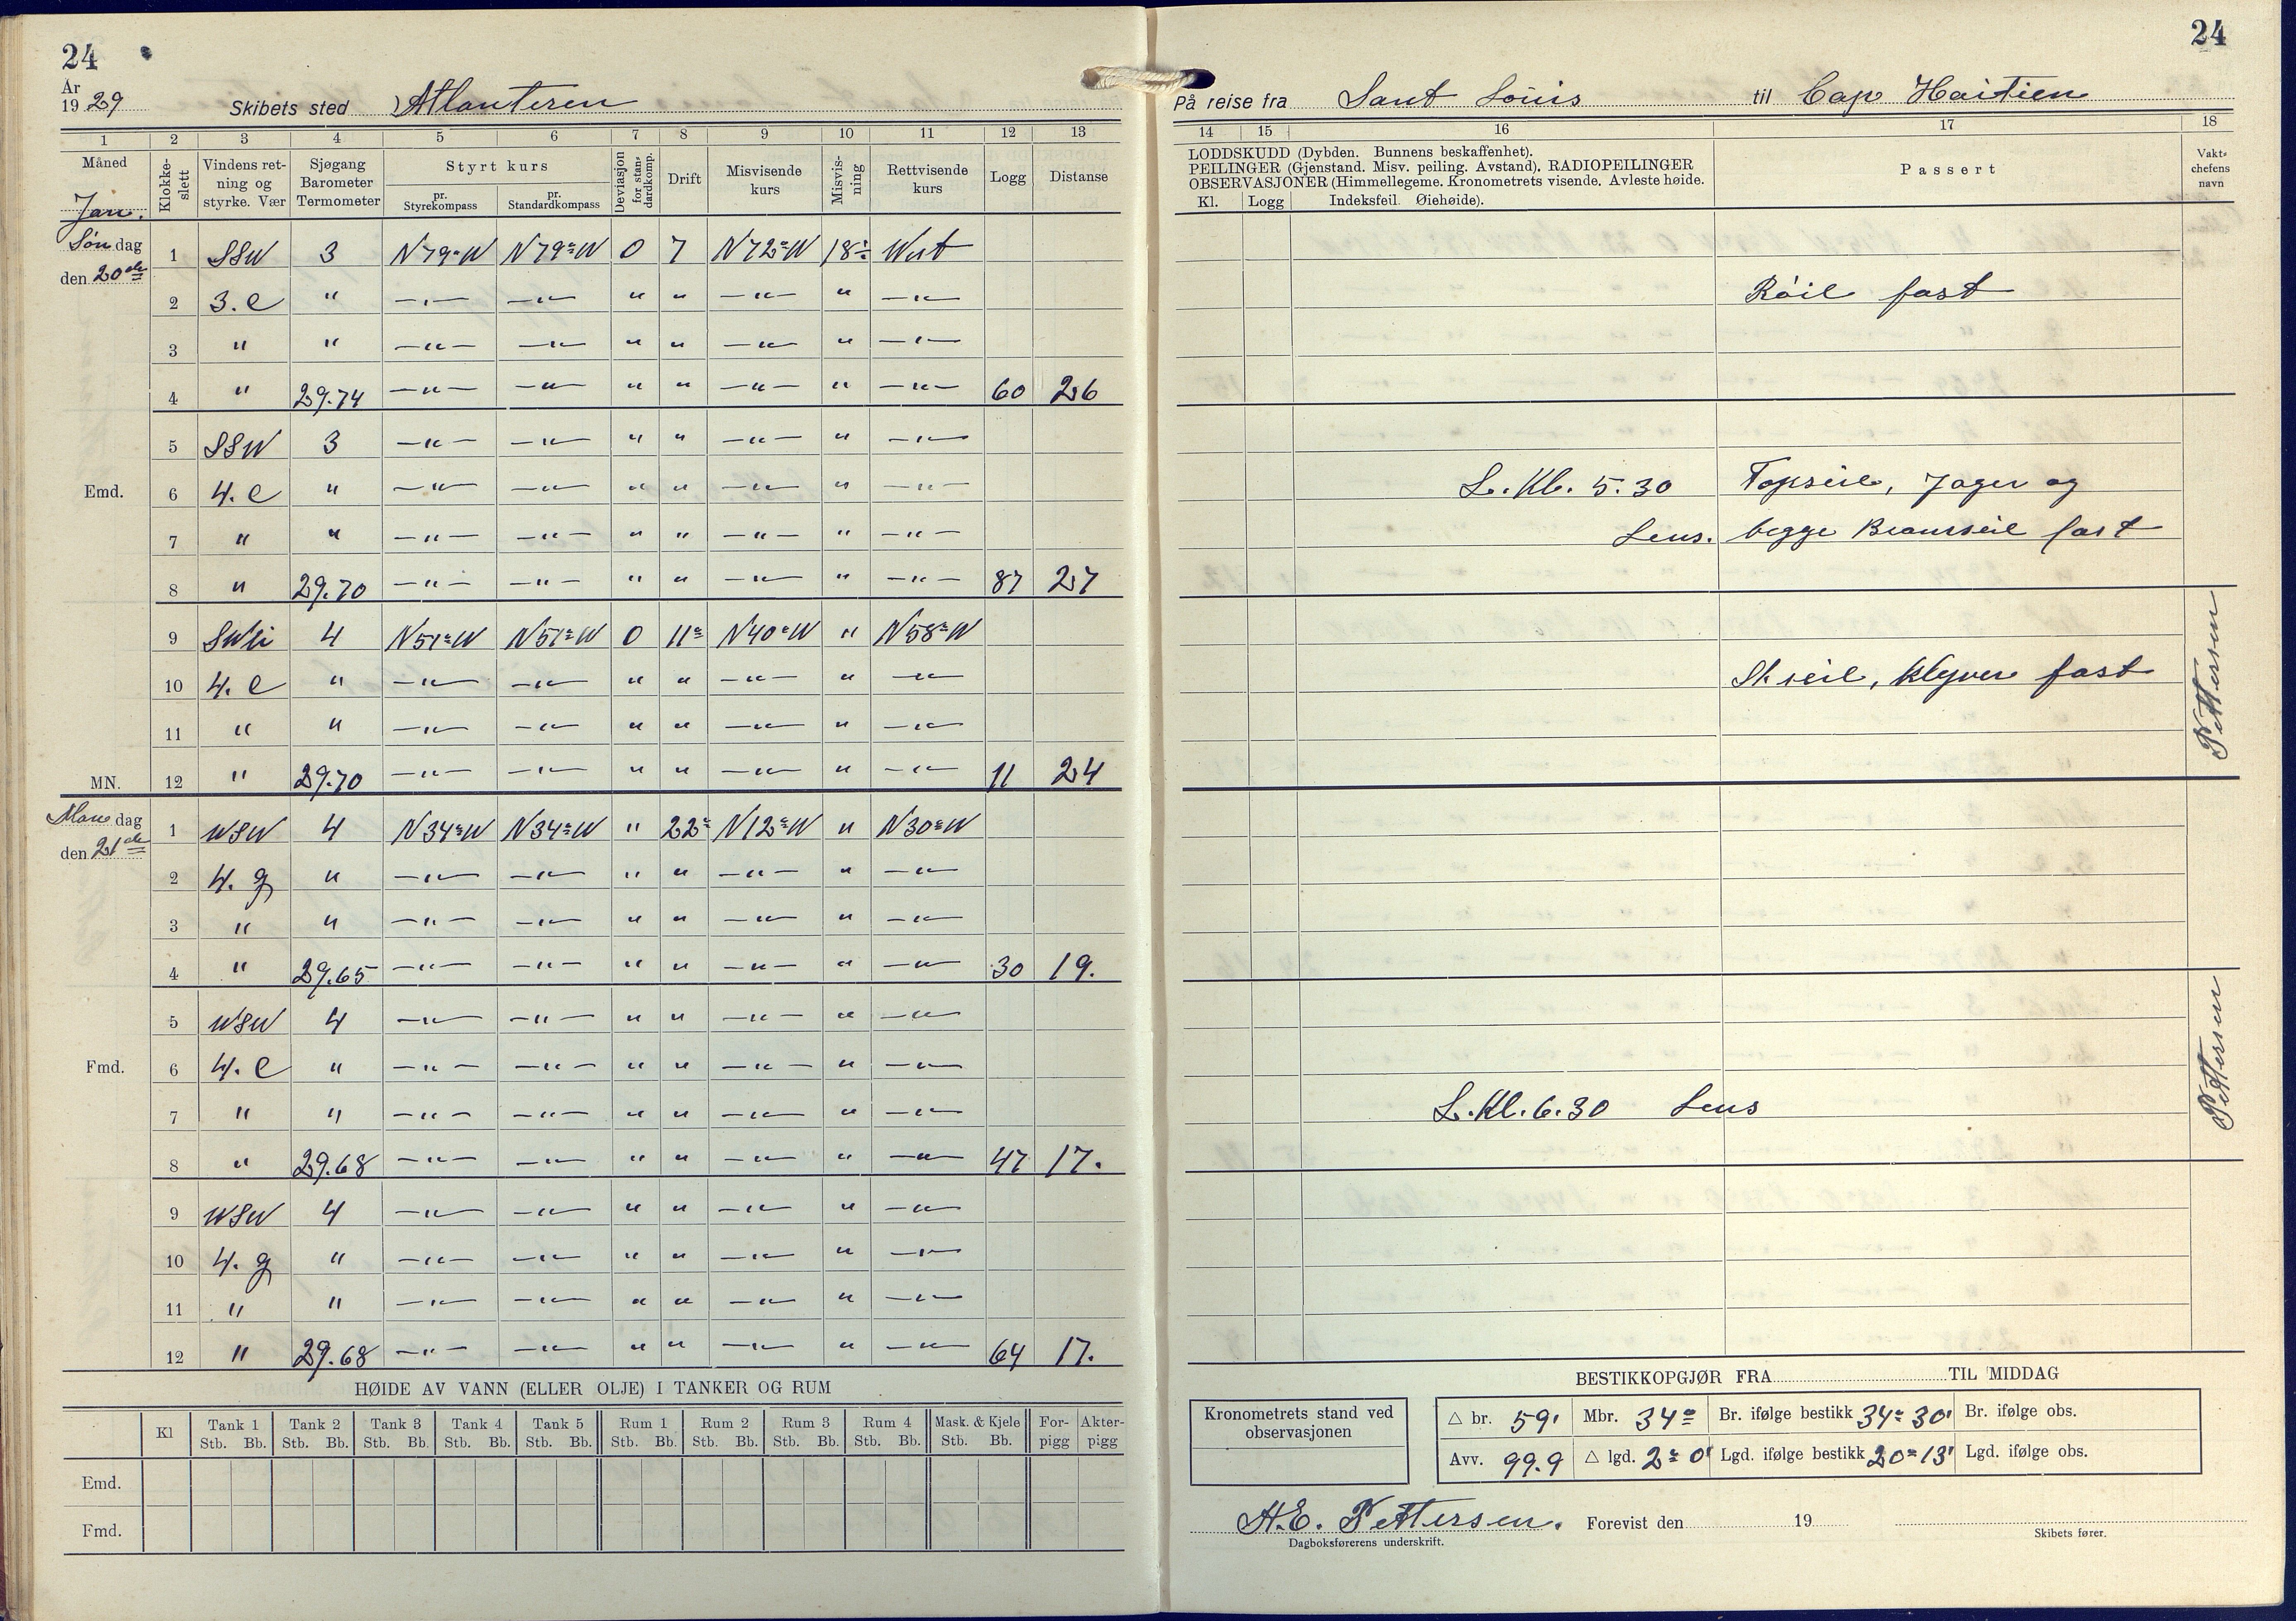 24
År
1929 Skibets sted Atlanteren
1 2 3 4 5 6 7 8 9 10 11 12 13
Måned Klokke-slett Vindens ret-ning og styrke. Vær Sjøgang Barometer Termometer Styrt kurs pr. Styrekompass pr. Standardkompass Deviasjon for stan-dardkomp. Drift Misvisende kurs Misvis-ning Rettvisende kurs Logg Distanse
Jan.
Søn dag 1 SSW 3 N79°W N79°W 0 7 N72°W 18÷ West
den 20de
2 3. c " —"— —"— " " —"— " —"—
3 " " —"— —"— " " —"— " —"—
4 " 29.74 —"— —"— " " —"— " —"— 60 26
5 SSW 3 —"— —"— " " —"— " —"—
Emd. 6 4. c " —"— —"— " " —"— " —"—
7 " " —"— —"— " " —"— " —"—
8 " 29.70 —"— —"— " " —"— " —"— 87 27
9 4 N51°W N51°W 0 11° N40°W " N58°W
10 4. c " —"— —"— " " —"— " —"—
11 " " —"— —"— " " —"— " —"—
MN. 12 " 29.70 —"— —"— " " —"— " —"— 11 24
Man dag 1 WSW 4 N34°W N34°W " 22° N12°W " N30°W
den 21de
2 4. g " —"— —"— " " —"— " —"—
3 " " —"— —"— " " —"— " —"—
4 " 29.65 —"— —"— " " —"— " —"— 30 19.
5 WSW 4 —"— —"— " " —"— " —"—
Fmd. 6 4. c " —"— —"— " " —"— " —"—
7 " " —"— —"— " " —"— " —"—
8 " 29.68 —"— —"— " " —"— " —"— 47 17.
9 WSW 4 —"— —"— " " —"— " —"—
10 4. g " —"— —"— " " —"— " —"—
11 " " —"— —"— " " —"— " —"—
12 " 29.68 —"— —"— " " —"— " —"— 64 17.
HØIDE AV VANN (ELLER OLJE) I TANKER OG RUM
Kl Tank 1 Tank 2 Tank 3 Tank 4 Tank 5 Rum 1 Rum 2 Rum 3 Rum 4 Mask. & Kjele For-pigg Akter-pigg
Stb. Bb. Stb. Bb. Stb. Bb. Stb. Bb. Stb. Bb. Stb. Bb. Stb. Bb. Stb. Bb. Stb. Bb. Stb. Bb.
Emd.
Fmd.
24
På reise fra Sant Louis til Cap Haitien
14 15 16 17 18
LODDSKUDD (Dybden. Bunnens beskaffenhet).
PEILINGER (Gjenstand. Misv. peiling. Avstand). RADIOPEILINGER
OBSERVASJONER (Himmellegeme. Kronometrets visende. Avleste høide.
Kl. Logg Indeksfeil. Øiehøide).
Passert
Vakt-
chefens
navn
Röil fast
L. Kl. 5.30 Topseil, Jager og
Lens. begge Bramseil fast
St seil, Klyver fast
Pettersen
L. Kl. 6.30 Lens
Pettersen
BESTIKKOPGJØR FRA TIL MIDDAG
Kronometrets stand ved
observasjonen
△ br. 59' Mbr. 34° Br. ifølge bestikk 34° 30' Br. ifølge obs.
Avv. 99.9 △ lgd. 2° 0' Lgd. ifølge bestikk 20° 13' Lgd. ifølge obs.
H.E. Pettersen. Forevist den 19
Dagboksførerens underskrift. Skibets fører.